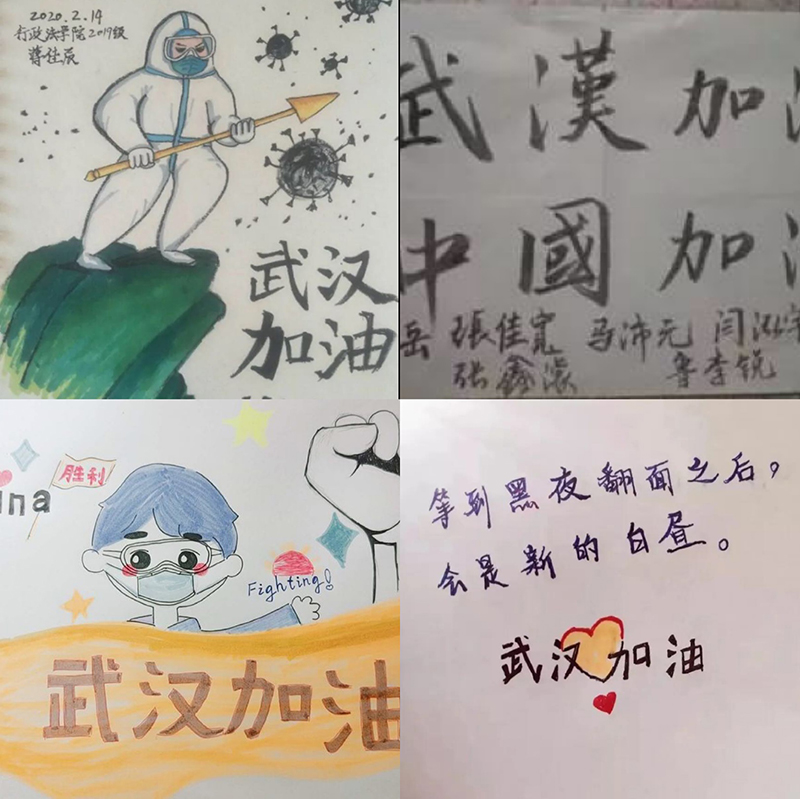 2020.2.14
行政法学院2019级
武汉
加油
武漢加油
中國加油
岳 張佳寬 马沛元 闫
张鑫 鲁李锐
ina
胜利
Fighting!
武汉加油
等到黑夜翻面之后，
会是新的白昼。
武汉加油